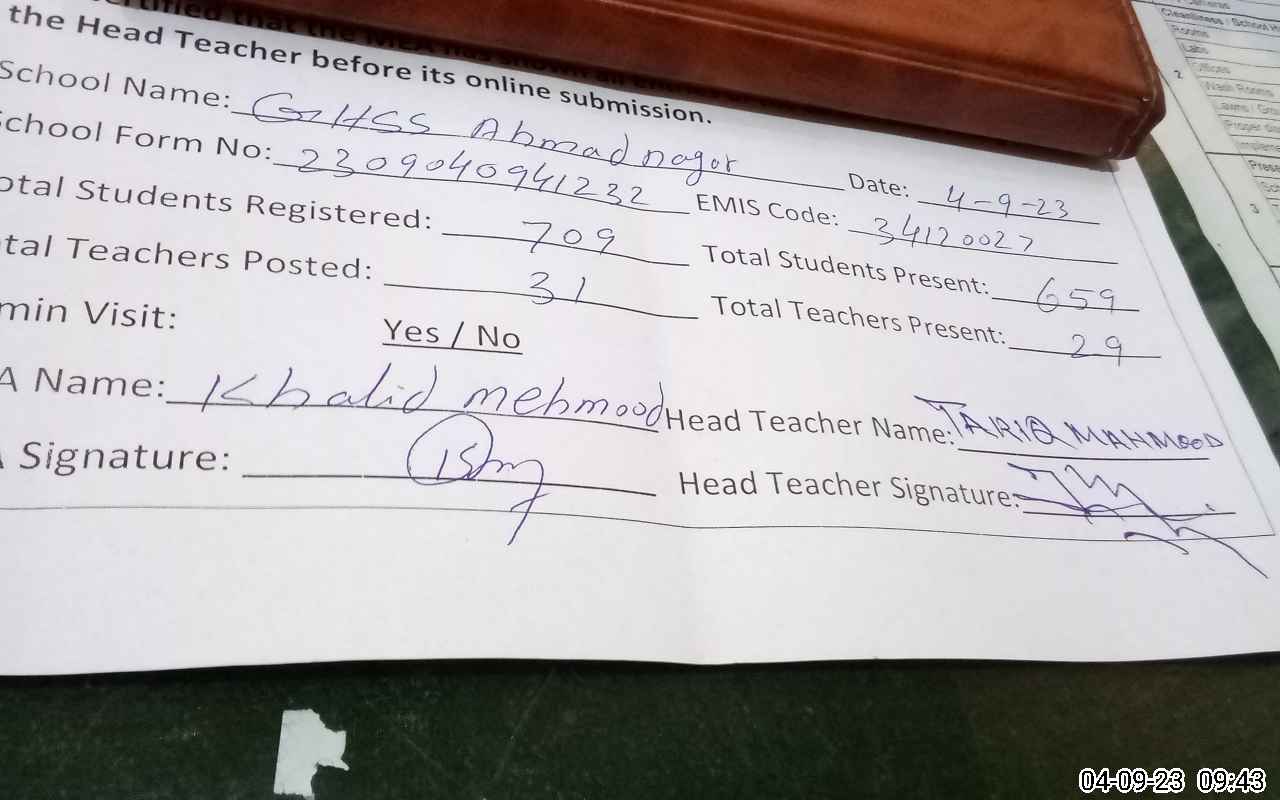 certified that the MEA has shown all
the Head Teacher before its online submission.
School Name: GHSS Ahmad nagar Date: 4-9-23
School Form No: 2309040941232 EMIS Code: 34120027
otal Students Registered: 709 Total Students Present: 659
tal Teachers Posted: 31 Total Teachers Present: 29
min Visit: Yes / No
A Name: Khalid mehmood Head Teacher Name: TARIQ MAHMOOD
Signature: Head Teacher Signature:
Cameras
Cleanliness / School H
Rooms
Labs
2 Offices
Wash Rooms
Lawns / Gro
Proper
Impleme
Prese
3
04-09-23 09:43